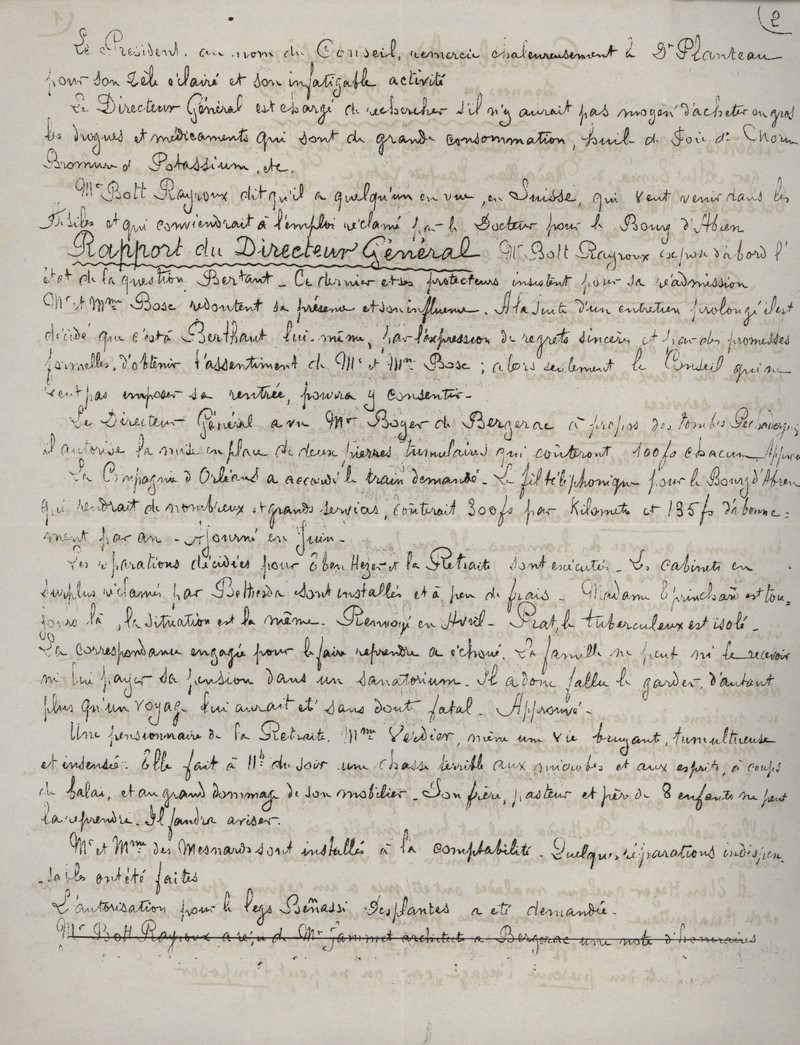 2
Le Président, au nom du Conseil, remercie chaleureusement le Dr Planteau
pour son zèle éclairé et son infatigable activité
Le Directeur Général est chargé de rechercher s'il n'y aurait pas moyen d'acheter en gros
les drogues et médicaments qui sont de grande consommation, huile de Foie de Morue
Bromure de Potassium, etc.
Mr Bott Rayroux dit qu'il a quelqu'un en vue, en Suisse, qui veut venir dans les
Asiles et qui conviendrait à l'emploi réclamé par le Docteur pour le Bourg d'Abren
Rapport du Directeur Général Mr Bott Rayroux expose d'abord l'
état de la question Bertaut - Ce dernier et ses protecteurs insistent pour sa réadmission
Mr et Mme Bosc redoutent sa présence et son influence. A la suite d'un entretien prolongé il est
décidé que c'est à Berthaut lui-même, par l'expression de regrets sincères et par des promesses
formelles, d'obtenir l'assentiment de Mr et Mme Bosc ; alors seulement le Conseil qui ne
veut pas imposer sa rentrée, pourra y consentir -
Le Directeur Général a vu Mr Boyer de Bergerac à propos des tombes
il autorise la mise en place de deux pierres tumulaires qui coûteront 100fs chacune Approuvé
La Compagnie d'Orléans a accordé le train demandé - Le fil téléphonique pour le Bourg d'Abren
qui rendrait de nombreux et grands services, coûterait 300fs par Kilomètre et 135fs d'abonne=
ment par an - Ajourné en Juin -
Les réparations décidées pour Eben Hezer et la Retraite sont exécutées - Les cabinets en
surplus réclamés par Bethesda sont installés et à peu de frais - Madame est tou=
jours là, la situation est la même. Renvoyé en Avril - Prat, le tuberculeux est isolé -
La correspondance engagée pour le faire reprendre a échoué. La famille ne peut ni le recevoir
ni lui payer sa pension dans un sanatorium. Il a donc fallu le garder, d'autant
plus qu'un voyage lui aurait été sans dout fatal - Approuvé -
Une pensionnaire de la Retraite, Mme Verdier, mène une vie bruyant, tumultueuse
et insensée. Elle fait à 11h du soir une chasse terrible aux microbes et aux esprits, à coups
de balai, et au grand dommage de son mobilier - Son frère, pasteur et père de 8 enfants ne peut
la reprendre. Il faudra aviser.
Mr et Mme des Mesnards sont installés à la comptabilité - Quelques réparations indispen
-sables ont été faites
L'autorisation pour le legs Benassi Desplantes a été demandée -
Mr Bott Rayroux a reçu de Mr Jammet architecte à Bergerac une note d'honoraires